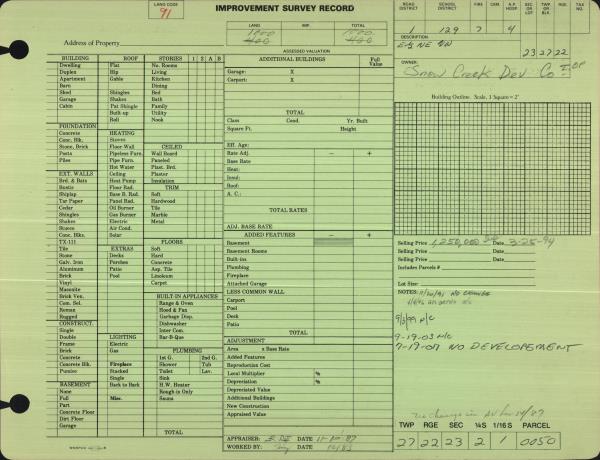 LAND CODE
91
IMPROVEMENT SURVEY RECORD
LAND IMP. TOTAL
1000 1000
400 400
ASSESSED VALUATION
Address of Property
ROAD DISTRICT SCHOOL DISTRICT FIRE CEM. A.P. HOSP. SEC. OR LOT TWP. OR BLK. RGE. TAX
1 129 7 4
DESCRIPTION
23 27 22
OWNER:
Snow Creek Dev Co
Building Outline. Scale, 1 Square = 2'
BUILDING ROOF STORIES 1 2 A B
Dwelling Flat No. Rooms
Duplex Hip Living
Apartment Gable Kitchen
Barn Dining
Shed Shingles Bed
Garage Shakes Bath
Cabin Pat Shingle Family
Built-up Utility
Roll Nook
FOUNDATION
Concrete HEATING
Conc. Blk. Stoves CEILED
Stone, Brick Floor Wall Wall Board
Posts Pipeless Furn. Paneled
Piles Pipe Furn. Part. Brd.
Hot Water Plaster
EXT. WALLS Ceiling Insulation
Brd. & Bats Heat Pump TRIM
Rustic Floor Rad. Soft
Shiplap Base B. Rad. Hardwood
Tar Paper Panel Rad. Tile
Cedar Oil Burner Marble
Shingles Gas Burner Metal
Shakes Electric
Stucco Air Cond.
Conc. Blks. Solar
TX-111 FLOORS
Tile EXTRAS Soft
Stone Decks Hard
Galv. Iron Porches Concrete
Aluminum Patio Asp. Tile
Brick Pool Linoleum
Vinyl Carpet
Masonite
Brick Ven. BUILT-IN APPLIANCES
Com. Sel. Range & Oven
Roman Hood & Fan
Rugged Garbage Disp.
CONSTRUCT. Dishwasher
Single Inter Com.
Double LIGHTING Bar-B-Que
Frame Electric
Brick Gas PLUMBING
Concrete 1st G. 2nd G.
Concrete Blk. Fireplace Shower Tub
Pumice Stacked Toilet Lav.
Single Sink
BASEMENT Back to Back H.W. Heater
None Rough in Only
Full Misc. Sauna
Part
Concrete Floor
Dirt Floor
Garage
TOTAL
ADDITIONAL BUILDINGS Full Value
Garage: X
Carport: X
TOTAL
Class Cond. Yr. Built
Square Ft. Height
Eff. Age:
Rate Adj. − +
Base Rate
Heat:
Insul:
Roof:
A. C.:
TOTAL RATES
ADJ. BASE RATE
ADDED FEATURES − +
Basement
Basement Rooms
Built-ins
Plumbing
Fireplace
Attached Garage
LESS COMMON WALL
Carport
Pool
Deck
Patio
TOTAL
ADJUSTMENT
Area x Base Rate
Added Features
Reproduction Cost
Local Multiplier %
Depreciation %
Depreciated Value
Additional Buildings
New Construction
Appraised Value
APPRAISER: 11-10-87
WORKED BY:
Selling Price 1,250,000 Date 3-25-94
Selling Price Date
Selling Price Date
Includes Parcels #
Lot Size:
NOTES: 11/20/91 NO CHANGE
9/3/99 N/C
9-17-03 N/C
7-17-07 NO DEVELOPEMENT
no change in AV for 14/87
TWP RGE SEC ¼S 1/16 S PARCEL
27 22 23 2 1 0050